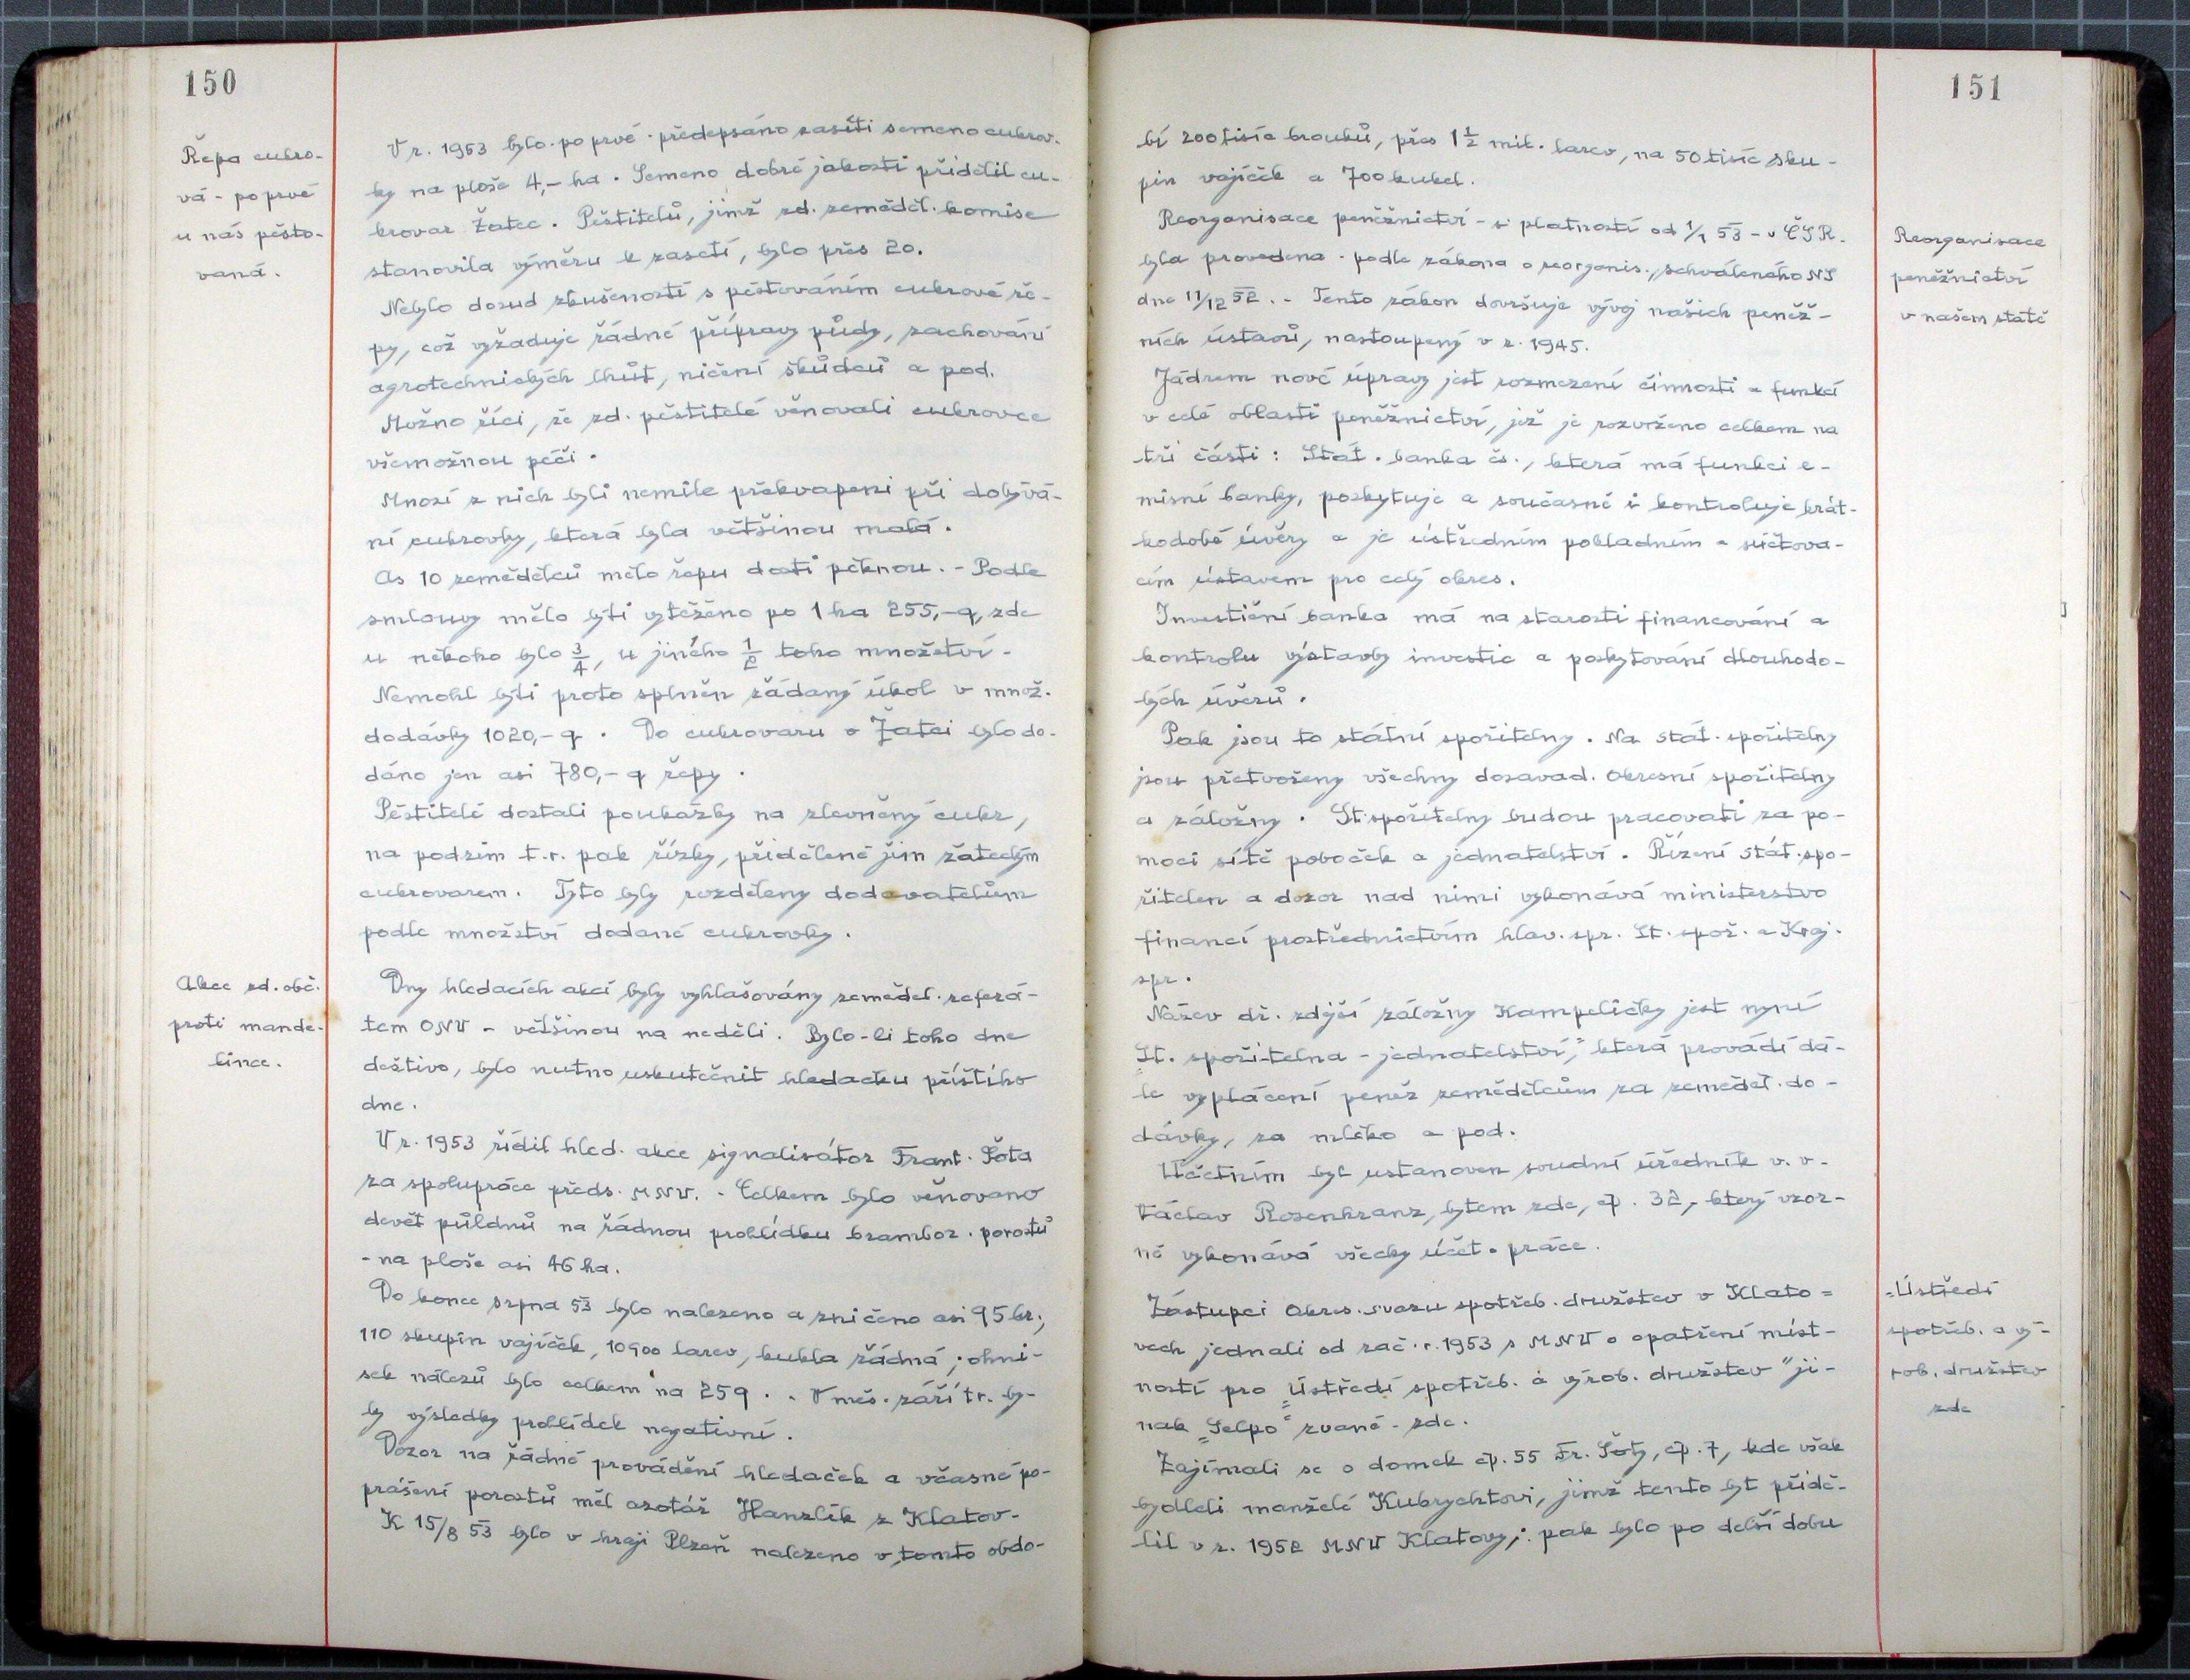 150
Řepa cukro-
vá - po prvé
u nás pěsto-
vaná.
V r. 1953 bylo po prvé předepsáno zasíti semeno cukrov-
ky na ploše 4,- ha. Semeno dobré jakosti přidělil cu-
krovar Žatec. Pěstitelů, jimž zd. zeměděl. komise
stanovila výměru k zasetí, bylo přes 20.
Nebylo dosud zkušeností s pěstováním cukrové ře-
py, což vyžaduje řádné přípravy půdy, zachování
agrotechnických lhůt, ničení škůdců a pod.
Možno říci, že zd. pěstitelé věnovali cukrovce
všemožnou péči.
Mnozí z nich byli nemile překvapeni při dobývá-
ní cukrovky, která byla většinou malá.
As 10 zemědělců mělo řepu dosti pěknou. - Podle
smlouvy mělo býti vytěženo po 1 ha 255,- q, zde
u někoho bylo 3/4, u jiného 1/2 toho množství.
Nemohl býti proto splněn žádaný úkol v množ.
dodávky 1020,- q. Do cukrovaru v Žatci bylo do-
dáno jen asi 780,- q řepy.
Pěstitelé dostali poukázky na zlevněný cukr,
na podzim t.r. pak řízky, přidělené jim žateckým
cukrovarem. Tyto byly rozděleny dodavatelům
podle množství dodané cukrovky.
Akce zd. obč.
proti mande-
lince.
Dny hledacích akcí byly vyhlašovány zeměděl. referá-
tem ONV - většinou na neděli. Bylo-li toho dne
deštivo, bylo nutno uskutečnit hledačku příštího
dne.
V r. 1953 řídil hled. akce signalisátor Frant. Šota
za spolupráce předs. MNV. - Celkem bylo věnováno
devět půldnů na řádnou prohlídku brambor. porostů
- na ploše asi 46 ha.
Do konce srpna 53 bylo nalezeno a zničeno asi 95 br.,
110 skupin vajíček, 10900 larev, kukla žádná; ohni-
sek nálezů bylo celkem na 259. - V měs. září t.r. by-
ly výsledky prohlídek negativní.
Dozor na řádné provádění hledaček a včasné po-
prášení porostů měl azotář Hanzlík z Klatov.
K 15/8 53 bylo v kraji Plzeň nalezeno v tomto obdo-
151
bí 200 tisíc brouků, přes 1 1/2 mil. larev, na 50 tisíc sku-
pin vajíček a 700 kukel.
Reorganisace peněžnictví - s platností od 1/1 53 - v ČSR.
byla provedena podle zákona o reorganis., schváleného NS
dne 11/12 52. - Tento zákon dovršuje vývoj našich peněž-
ních ústavů, nastoupený v r. 1945.
Reorganisace
peněžnictví
v našem státě
Jádrem nové úpravy jest rozmezení činnosti a funkcí
v celé oblasti peněžnictví, jež je rozvrženo celkem na
tři části: Stát. banka čs., která má funkci e-
misní banky, poskytuje a současně i kontroluje krát-
kodobé úvěry a je ústředním pokladním a súčtova-
cím ústavem pro celý okres.
Investiční banka má na starosti financování a
kontrolu výstavby investic a poskytování dlouhodo-
bých úvěrů.
Pak jsou to státní spořitelny. Na stát. spořitelny
jsou přetvořeny všechny dosavad. okresní spořitelny
a záložny. St. spořitelny budou pracovati za po-
moci sítě poboček a jednatelství. Řízení stát. spo-
řitelen a dozor nad nimi vykonává ministerstvo
financí prostřednictvím hlav. spr. St. spoř. a Kraj.
spr.
Název dř. zdejší záložny Kampeličky jest nyní
„St. spořitelna - jednatelství," která provádí dá-
le vyplácení peněz zemědělcům za zeměděl. do-
dávky, za mléko a pod.
Účetním byl ustanoven soudní úředník v. v.
Václav Rosenkranz, bytem zde, čp. 32, který vzor-
ně vykonává všecky účet. práce.
Zástupci Okres. svazu spotřeb. družstev v Klato=
vech jednali od zač. r. 1953 s MNV o opatření míst-
ností pro „Ústředí spotřeb. a výrob. družstev" ji-
nak „Selpo" zvané - zde.
„Ústředí
spotřeb. a vý-
rob. družstev
zde
Zajímali se o domek čp. 55 Fr. Šoty, čp. 7, kde však
bydleli manželé Kubrychtovi, jimž tento byt přidě-
lil v r. 1952 MNV Klatovy; pak bylo po delší dobu